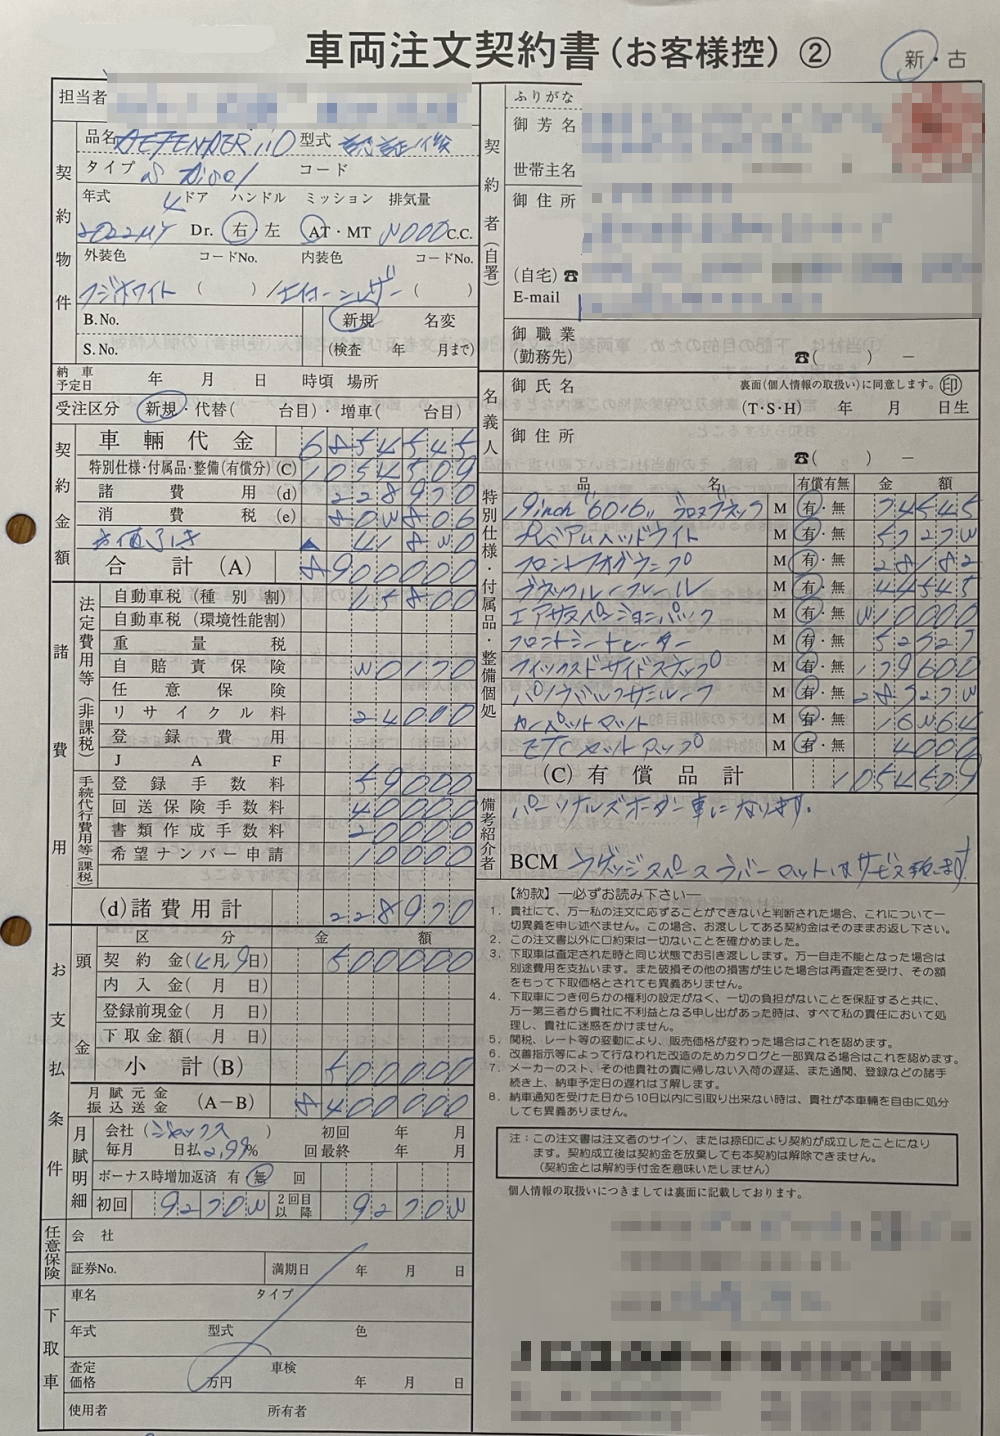 車両注文契約書(お客様控) ②
新・古
担当者
契約物件
品名 DEFENDER 110 型式
タイプ コード
年式 4ドア ハンドル ミッション 排気量
2022MY Dr. 右・左 AT・MT C.C.
外装色 コードNo. 内装色 コードNo.
フジホワイト ( ) / ( )
B.No. 新規 名変
S.No. (検査 年 月まで)
納車予定日 年 月 日 時頃 場所
受注区分 新規・代替( 台目)・増車( 台目)
契約金額
車輛代金 6854545
特別仕様・付属品・整備(有償分)(C) 1054509
諸費用(d) 228970
消費税(e)
お値引き ▲
合計(A) 8900000
諸費用
法定費用等(非課税)
自動車税(種別割) 15800
自動車税(環境性能割)
重量税
自賠責保険
任意保険
リサイクル料 24000
登録費用
JAF
手続代行費用等(課税)
登録手数料 59000
回送保険手数料 40000
書類作成手数料 20000
希望ナンバー申請 10000
(d)諸費用計 228970
お支払条件
区分 金額
頭金
契約金(4月9日) 500000
内入金( 月 日)
登録前現金( 月 日)
下取金額( 月 日)
小計(B) 500000
月賦元金
振込送金 (A−B) 8400000
月賦明細
会社(ジャックス) 初回 年 月
毎月 日払 2.99% 回最終 年 月
ボーナス時増加返済 有 無 回
初回 2回目以降
任意保険
会社
証券No. 満期日 年 月 日
下取車
車名 タイプ
年式 型式 色
査定価格 万円 車検 年 月 日
使用者 所有者
契約者(自署)
ふりがな
御芳名
世帯主名
御住所
(自宅)☎
E-mail
御職業
(勤務先) ☎( ) −
名義人
御氏名 裏面(個人情報の取扱い)に同意します。㊞
(T・S・H) 年 月 日生
御住所
☎( ) −
特別仕様・付属品・整備個処
品名 有償有無 金額
19inch "6010" グロスブラック M 有・無 74545
プレミアムヘッドライト M 有・無
フロントフォグランプ M 有・無 28182
ブラックルーフレール M 有・無 44545
エアサスペンションパック M 有・無
フロントシートヒーター M 有・無 52727
フィックスドサイドステップ M 有・無 79600
パノラミックサンルーフ M 有・無
カーペットマット M 有・無
ETCセットアップ M 有・無 4000
(C)有償品計 1054509
備考紹介者
パーソナルズオーダー車になります。
BCM ラゲッジスペースラバーマットはサービス致します。
【約款】―必ずお読み下さい―
1. 貴社にて、万一私の注文に応ずることができないと判断された場合、これについて一切異義を申し述べません。この場合、お渡ししてある契約金はそのままお返し下さい。
2. この注文書以外に口約束は一切ないことを確かめました。
3. 下取車は査定された時と同じ状態でお引き渡しします。万一自走不能となった場合は別途費用を支払います。また破損その他の損害が生じた場合は再査定を受け、その額をもって下取価格とされても異義ありません。
4. 下取車につき何らかの権利の設定がなく、一切の負担がないことを保証すると共に、万一第三者から貴社に不利益となる申し出があった時は、すべて私の責任において処理し、貴社に迷惑をかけません。
5. 関税、レート等の変動により、販売価格が変わった場合はこれを認めます。
6. 改善指示等によって行なわれた改造のためカタログと一部異なる場合はこれを認めます。
7. メーカーのスト、その他貴社の責に帰しない入荷の遅延、また通関、登録などの諸手続き上、納車予定日の遅れは了解します。
8. 納車通知を受けた日から10日以内に引取り出来ない時は、貴社が本車輛を自由に処分しても異義ありません。
注：この注文書は注文者のサイン、または捺印により契約が成立したことになります。契約成立後は契約金を放棄しても本契約は解除できません。
(契約金とは解約手付金を意味いたしません)
個人情報の取扱いにつきましては裏面に記載しております。